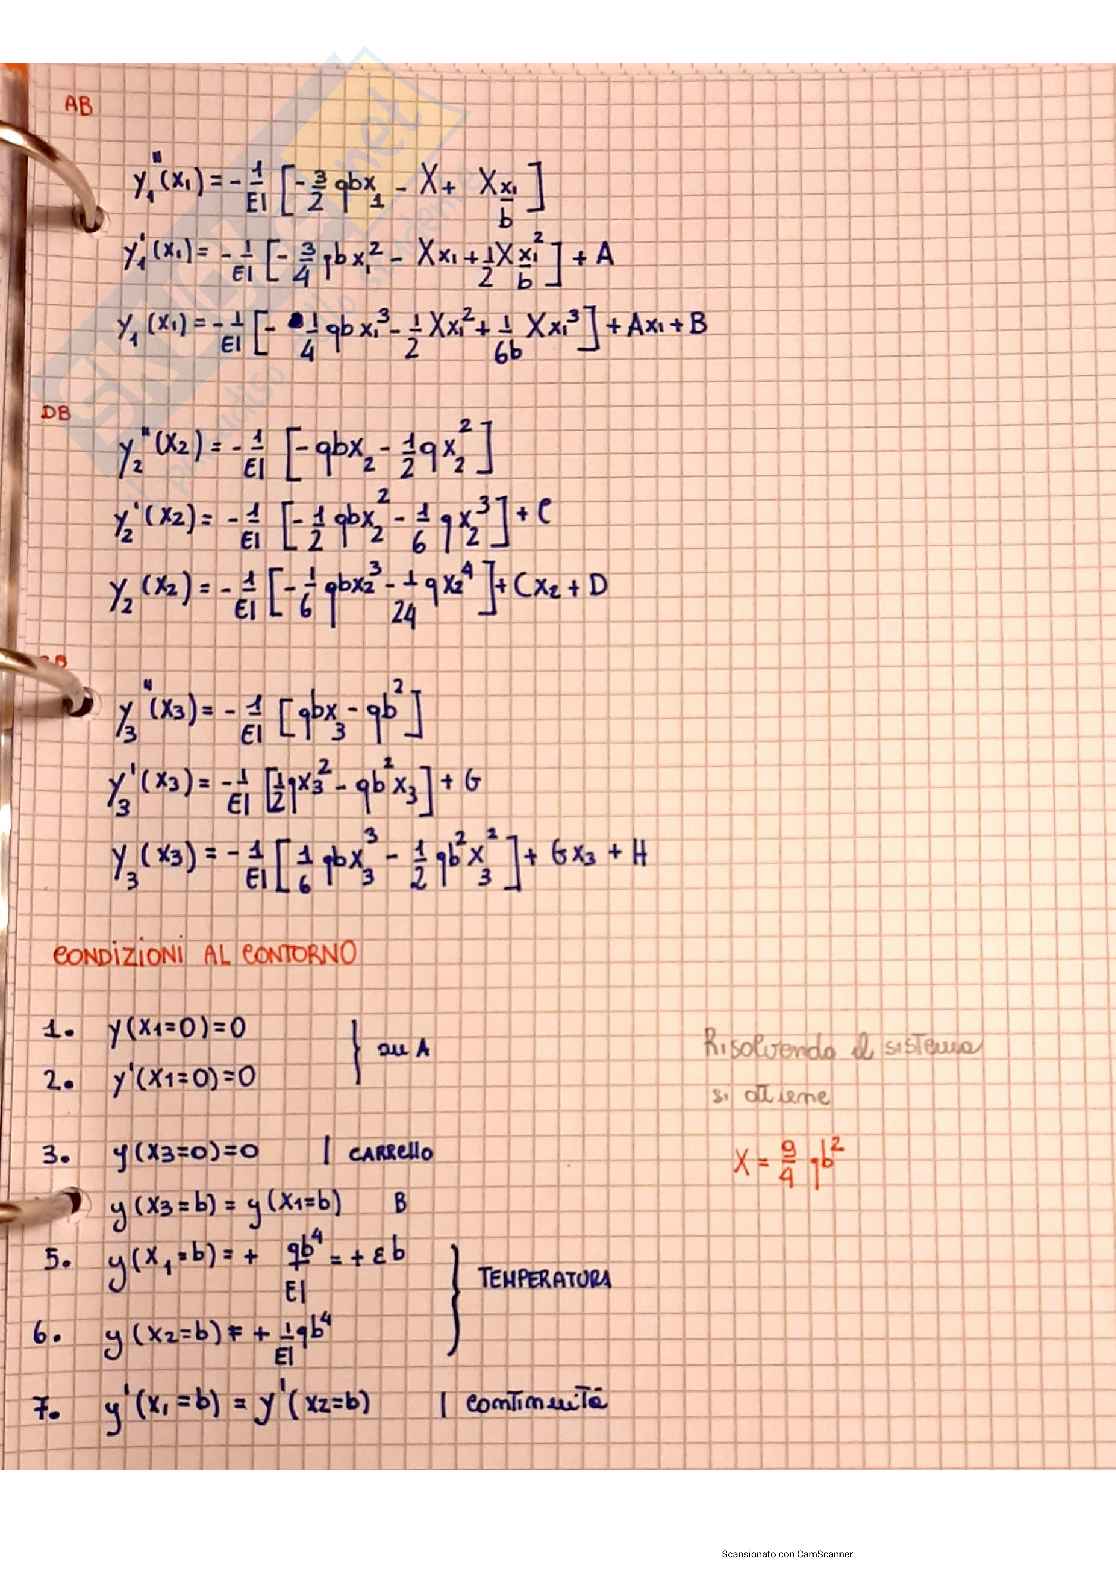 AB
y₁"(x₁) = - 1/EI [- 3/2 qbx₁ - X + X x₁/b]
y₁'(x₁) = - 1/EI [- 3/4 qbx₁² - Xx₁ + 1/2 X x₁²/b] + A
y₁(x₁) = - 1/EI [- 1/4 qbx₁³ - 1/2 Xx₁² + 1/6b Xx₁³] + Ax₁ + B
DB
y₂"(x₂) = - 1/EI [- qbx₂ - 1/2 qx₂²]
y₂'(x₂) = - 1/EI [- 1/2 qbx₂² - 1/6 qx₂³] + C
y₂(x₂) = - 1/EI [- 1/6 qbx₂³ - 1/24 qx₂⁴] + Cx₂ + D
y₃"(x₃) = - 1/EI [qbx₃ - qb²]
y₃'(x₃) = - 1/EI [1/2 qx₃² - qb²x₃] + G
y₃(x₃) = - 1/EI [1/6 qbx₃³ - 1/2 qb²x₃²] + Gx₃ + H
CONDIZIONI AL CONTORNO
1. y(x1=0)=0
2. y'(x1=0)=0 } in A
3. y(x3=0)=0 | CARRELLO
y(x3=b) = y(x1=b) B
5. y(x₁=b) = + qb⁴/EI = + εb
6. y(x2=b) = + 1/EI qb⁴ } TEMPERATURA
7. y'(x₁=b) = y'(x2=b) | continuità
Risolvendo il sistema
si ottiene
X = 9/4 qb²
Scansionato con CamScanner